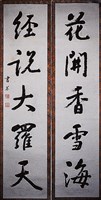 花開香雪海
經説大羅天